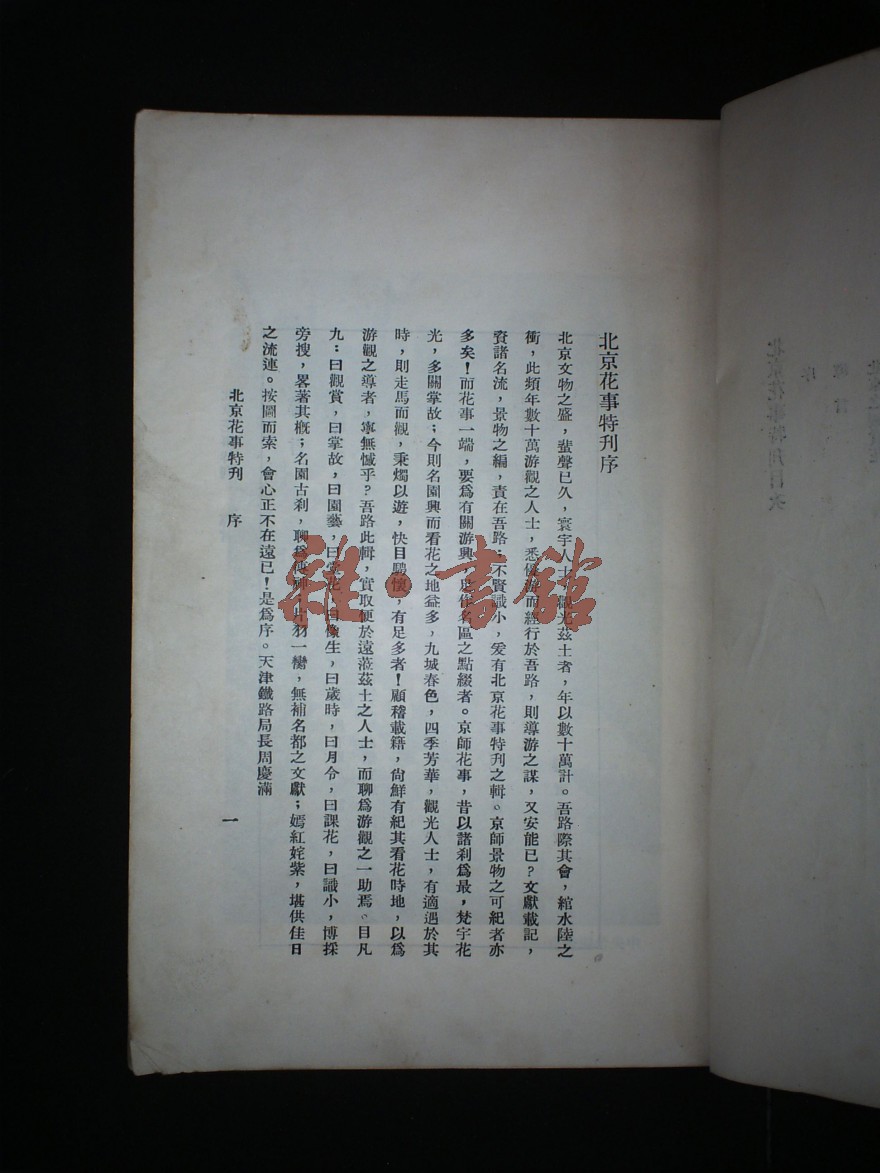 北京花事特刋序
北京文物之盛，蜚聲已久，寰宇人士，觀光茲土者，年以數十萬計。吾路際其會，綰水陸之
衝，此頻年數十萬游觀之人士，悉 而經行於吾路，則導游之謀，又安能已？文獻載記，
資諸名流，景物之編，責在吾路；不賢識小，爰有北京花事特刋之輯。京師景物之可紀者亦
多矣！而花事一端，要爲有關游興， 作名區之點綴者。京師花事，昔以諸刹爲最，梵宇花
光，多關掌故；今則名園興而看花之地益多，九城春色，四季芳華，觀光人士，有適遇於其
時，則走馬而觀，秉燭以遊，快目騁懷，有足多者！顧稽載籍，尙鮮有紀其看花時地，以爲
游觀之導者，寧無憾乎？吾路此輯，實取便於遠蒞茲土之人士，而聊爲游觀之一助焉。目凡
九：曰觀賞，曰掌故，曰園藝，曰堂花，曰像生，曰歲時，曰月令，曰課花，曰識小，博採
旁搜，畧著其概；名園古刹，聊爲 ，片羽一臠，無補名都之文獻；嫣紅姹紫，堪供佳日
之流連。按圖而索，會心正不在遠已！是爲序。天津鐵路局長周慶滿
北京花事特刋 序 一
雜·書館
北京花事特刋目次
序